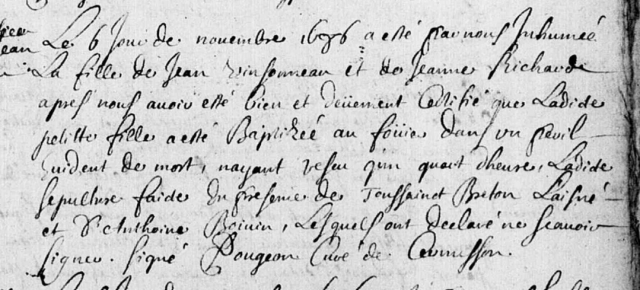 Le 6 Jour de novembre 1686 a esté par nous Inhumeé
La fille de Jean Vinsonneau et de Jeanne Richarde
apres nous auoir esté bien et deüement Certifié que Ladicte
petitte fille a esté Baptizéé au foüier dans un peril
euident de mort, nayant vescu qun quart dheure, Ladicte
sepulture faicte En presence de Toussainct Breton Laisné
et d'Anthoine Boiuin, Lesquels ont declaré ne scauoir
signer. signé Pougeon Curé de